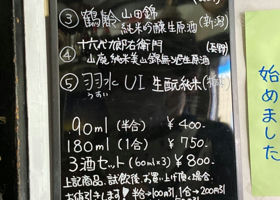 ③ 鶴齢 山田錦
純米吟醸生原酒 (新潟)
④ 十六代九郎右衛門 (長野)
山廃 純米 美山錦 無ろ過生原酒
⑤ 羽水 UI 生酛純米
うすい
90ml (半合) ¥400-
180ml (1合) ¥750-
3酒セット (60ml×3) ¥800-
上記商品、試飲後、お買い上げ頂く場合
お値引きします! 半合→100円引、1合→200円引
始めました